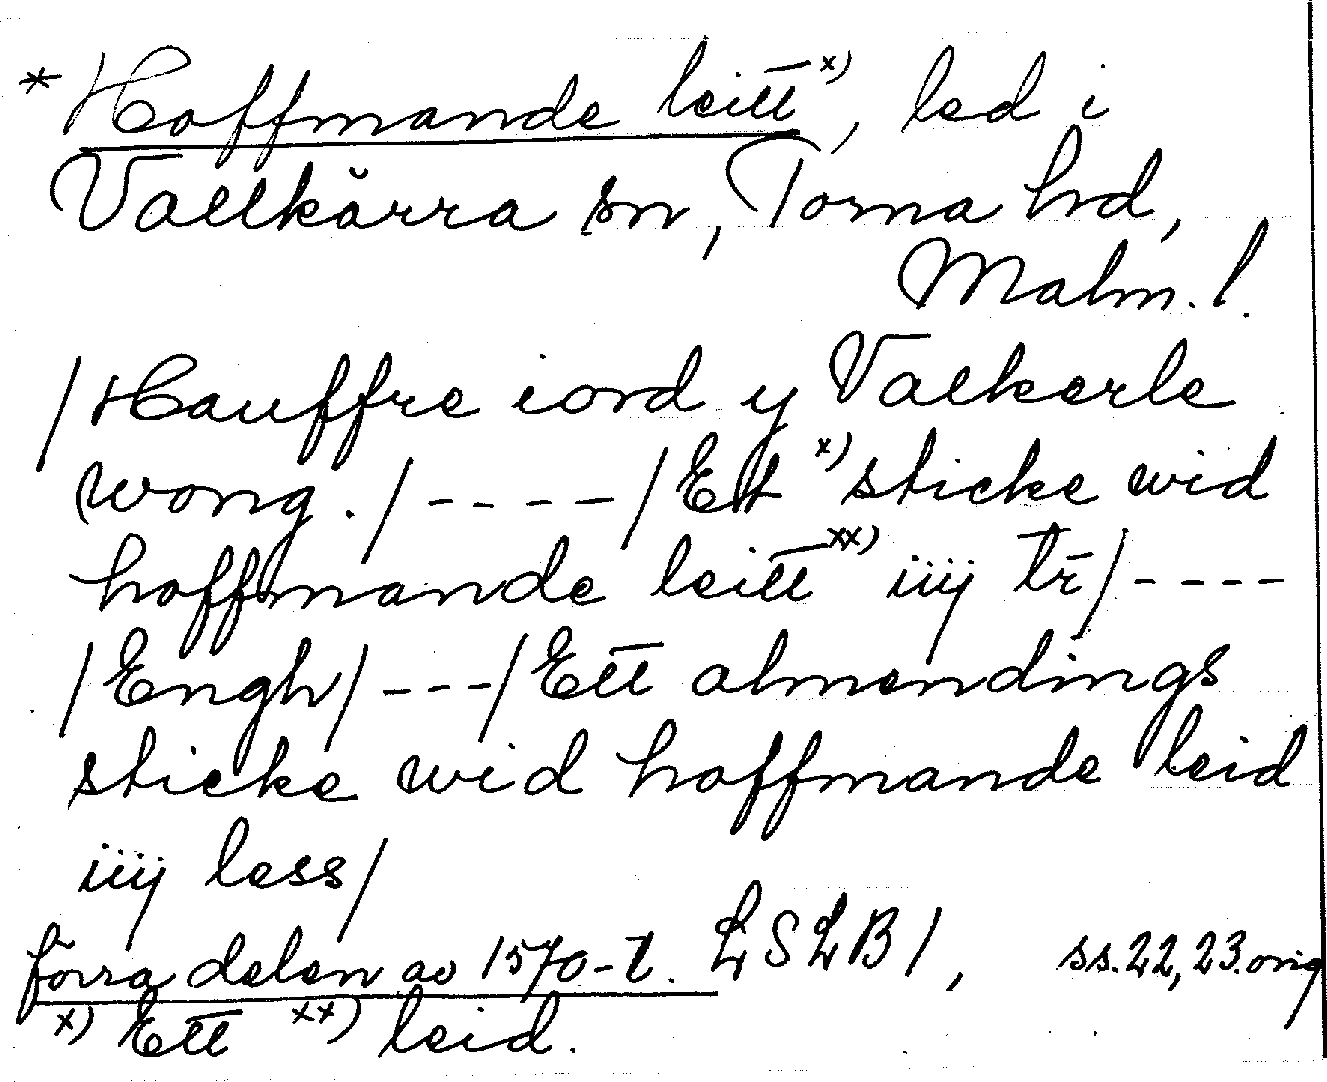 * Hoffmande leitt x), led i
Vallkärra sn, Torna hd,
Malm. l.
/Hauffre iord y Valkerle
wong./----/Ett x) sticke wid
hoffmande leitt xx) iiij tr̄/----
/Engh/---/Ett almendings
sticke wid hoffmande leid
iiij less/
förra delen av 1570-t. LSLB 1, ss. 22, 23. orig
x) Ett xx) leid.